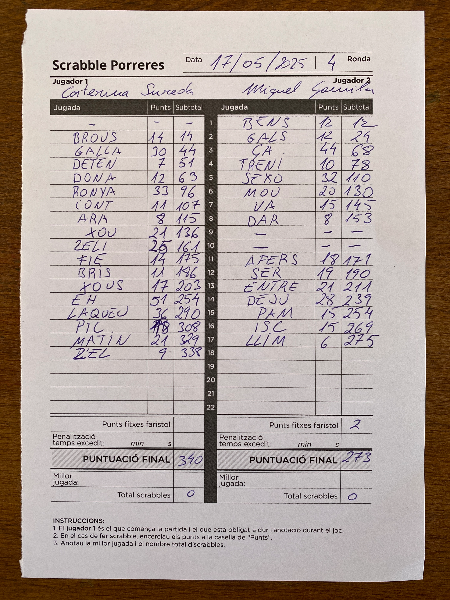 Scrabble Porreres Data 17/05/2025 | 4 Ronda
Jugador 1 Jugador 2
Caterina Sureda Miquel
Jugada Punts Subtotal Jugada Punts Subtotal
- - 1 BENS 12 12
BROUS 14 14 2 GALS 12 24
GALLA 30 44 3 ÇA 44 68
DETEN 7 51 4 TRENI 10 78
DONA 12 63 5 SEXO 32 110
RONYA 33 96 6 MOU 20 130
CONT 11 107 7 VA 15 145
ARA 8 115 8 DAR 8 153
XOU 21 136 9 - -
ZELI 25 161 10 - -
FIE 14 175 11 APERS 18 171
BRIS 11 186 12 SER 19 190
XOUS 17 203 13 ENTRE 21 211
EH 51 254 14 DEJU 28 239
LAQUEU 36 290 15 PAM 15 254
PIC 18 308 16 ISC 15 269
MATIN 21 329 17 LLIM 6 275
ZEL 9 338 18
19
20
21
22
Punts fitxes faristol Punts fitxes faristol 2
Penalització temps excedit: min s Penalització temps excedit: min s
PUNTUACIÓ FINAL 340 PUNTUACIÓ FINAL 273
Millor jugada: Millor jugada:
Total scrabbles 0 Total scrabbles 0
INSTRUCCIONS:
1. El jugador 1 és el que comença la partida i el que està obligat a dur l'anotació durant el joc.
2. En el cas de fer scrabble, encercleu els punts a la casella de "Punts".
3. Anotau la millor jugada i el nombre total d'scrabbles.